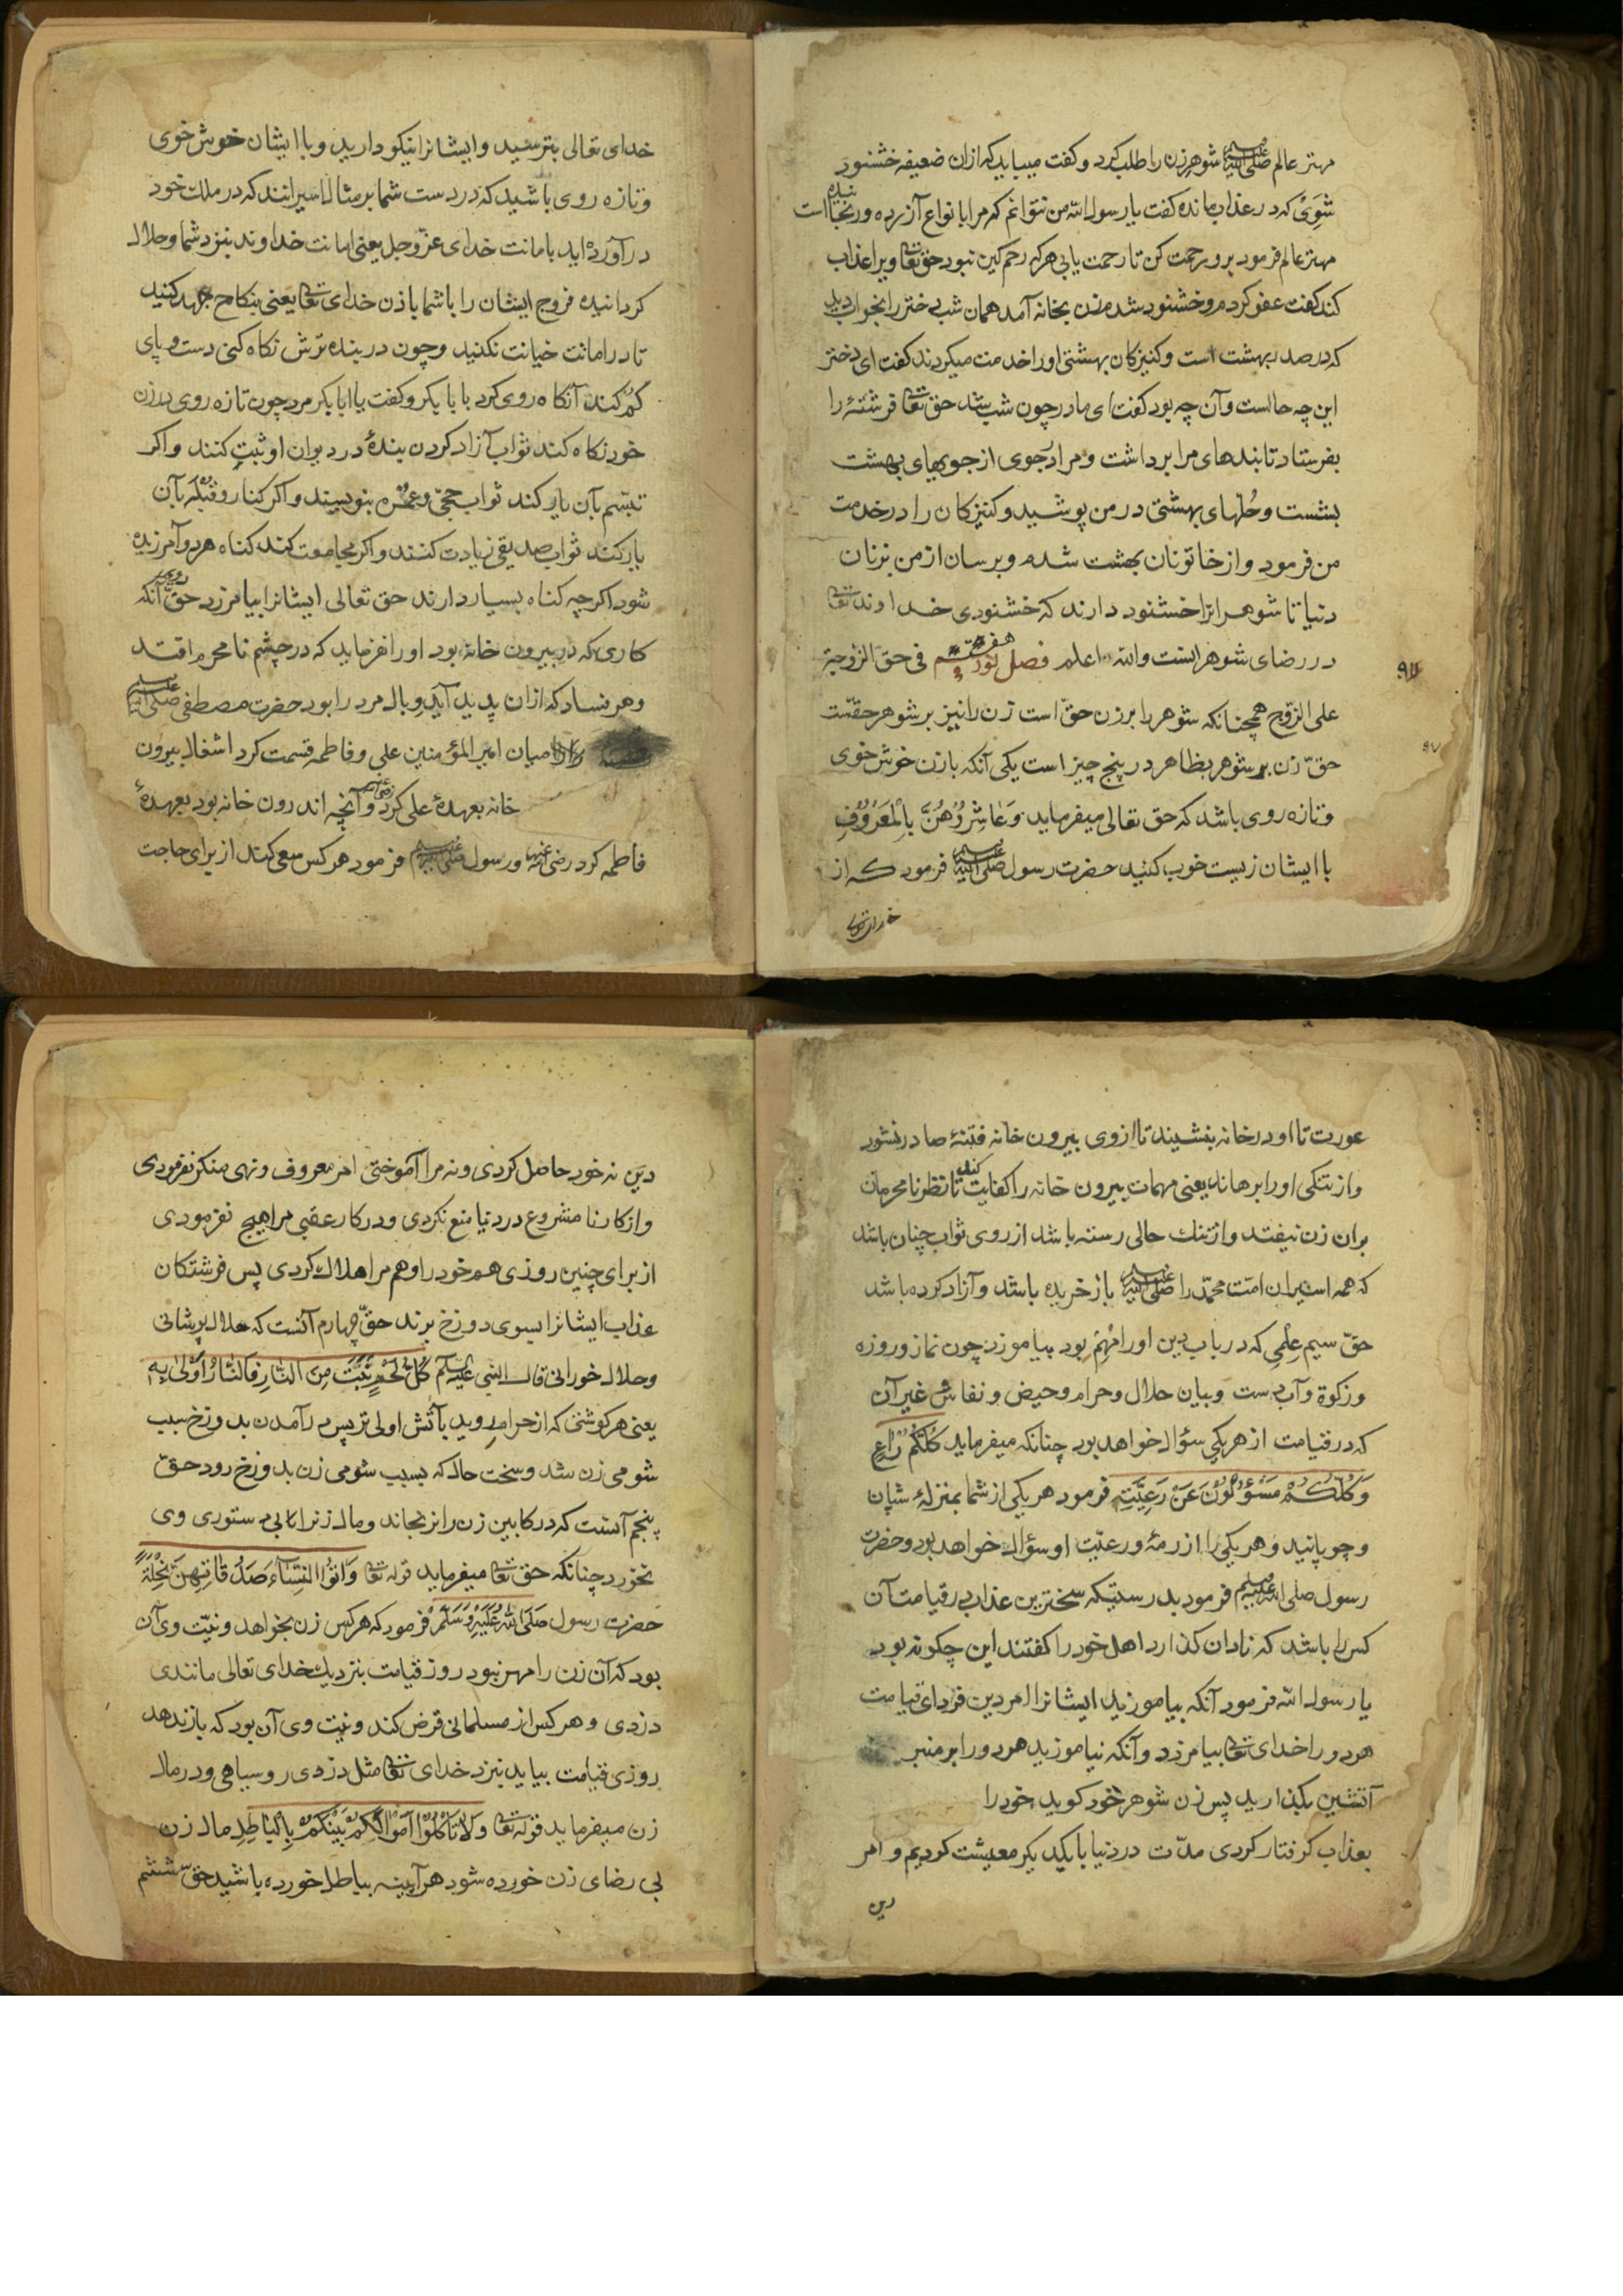 مهتر عالم صلی الله علیه شوهر زن را طلب کرد و گفت میباید که ازان ضعیفه خشنود
شوی که در عذاب مانده گفت یا رسول الله من نتوانم که مرا بانواع آزرده و رنجانیده است
مهتر عالم فرمود برو رحمت کن تا رحمت یابی هر که رحم کین نبود حق تعا ویرا عذاب
کند گفت عفو کردم و خشنود شدم زن بخانه آمد همان شب دختر را بخواب دید
که در صدر بهشت است و کنیزکان بهشتی او را خدمت میکردند گفت ای دختر
این چه حالست و آن چه بود گفت ای مادر چون شب شد حق تعا فرشتهٔ را
بفرستاد تا بندهای مرا برداشت و مرا درجوی از جویهای بهشت
بشست و حلهای بهشتی در من پوشید و کنیزکان را در خدمت
من فرمود و از خاتونان بهشت شدم و برسان از من بزنان
دنیا تا شوهرانرا خشنود دارند که خشنودی خداوند تعا
در رضای شوهرانست والله اعلم فصل نود و هفتم فی حق الزوجة
۹۷
علی الزوج همچنانکه شوهر را بر زن حقّ است زن را نیز بر شوهر حقّست
۹۷
حقّ زن بر شوهر بظاهر در پنج چیز است یکی آنکه بازن خوش خوی
وتازه روی باشد که حق تعالی میفرماید وَعَاشِرُوهُنَّ بِالْمَعْرُوفِ
با ایشان زیست خوب کنید حضرت رسول صلی الله علیه فرمود که از
خدای تعالی
خدای تعالی بترسید وایشانرا نیکو دارید و با ایشان خوش خوی
وتازه روی باشید که در دست شما بر مثال اسیرانند که در ملک خود
در آورده اید بامانت خدای عزّ وجل یعنی امانت خداوند بنزد شما و حلال
کردانیده فروج ایشان را باشما باذن خدای تعا یعنی بنکاح جهد کنید
تا در امانت خیانت نکنید وچون در بنده ترش نکاه کنی دست و پای
کم کند آنکاه روی کرد با بابکر و کفت یا ابابکر مرد چون تازه روی در زن
خود نکاه کند ثواب آزاد کردن بندهٔ در دیوان او ثبت کنند و اکر
تبسّم بآن یار کند ثواب حجّی و عمره بنویسند و اکر کنار و قبله بآن
یار کند ثواب صدیقی زیادت کنند و اکر مجامعت کند کناه هر دو آمرزیده
شود اکرچه کناه بسیار دارند حق تعالی ایشانرا بیامرزد حقّ دویم آنکه
کاری که در بیرون خانه بود او را نفرماید که در چشم نامحرم افتد
وهر فساد که ازان پدید آید وبال مرد را بود حضرت مصطفی صلی الله علیه
میان امیر المؤمنین علی و فاطمه قسمت کرد اشغال بیرون
خانه بعهدهٔ علی کرد و آنچه اندرون خانه بود بعهدهٔ
فاطمه کرد رضی الله عنها ورسول صلی الله علیه فرمود هر کس سعی کند از برای حاجت
عورت تا او در خانه بنشیند تا ازوی بیرون خانه فتنهٔ صادر نشود
واز تنکی او را برهاند یعنی مهمات بیرون خانه را کفایت کند تا نظر نامحرمان
بران زن نیفتد واز تنك حالی رسته باشد از روی ثواب چنان باشد
که همه اسیران امّت محمّد را صلی الله علیه باز خریده باشد و آزاد کرده باشد
حقّ سیم علمی که در باب دین او را مهم بود بیاموزد چون نماز و روزه
وزکوة و آب دست وبیان حلال وحرام وحیض ونفاس و غیر آن
که در قیامت از هر یکی سؤال خواهد بود چنانکه میفرماید کُلُّکُمْ رَاعٍ
وَکُلُّکُمْ مَسْؤُلُونَ عَنْ رَعِیَّتِهِ فرمود هر یکی از شما بمنزلهٔ شبان
و چوپانید وهر یکی را از رمه ورعیّت او سؤال خواهد بود وحضرت
رسول صلی الله علیه وسلم فرمود بدرستیکه سخترین عذاب در قیامت آن
کس را باشد که نادان کذارد اهل خود را کفتند این چکونه بود
یا رسول الله فرمود آنکه بیاموزید ایشانرا امر دین فردای قیامت
هر دو را خدای تعا بیامرزد و آنکه نیاموزید هر دو را بر منبر
آتشین بکذارید پس زن شوهر خود کوید خود را
بعذاب کرفتار کردی مدّت در دنیا با یکدیکر معیشت کردیم و امر
دین
دین نه خود حاصل کردی و نه مرا آموختی امر معروف ونهی منکر نفرمودی
واز کار نا مشروع در دنیا منع نکردی ودر کار عقبی مرا هیچ نفرمودی
از برای چنین روزی هم خود را وهم مرا هلاك کردی پس فرشتکان
عذاب ایشانرا بسوی دوزخ برند حقّ چهارم آنست که حلال پوشانی
وحلال خورانی قال النبی علیه السلام کُلُّ لَحْمٍ نَبَتَ مِنَ النَّارِ فَالنَّارُ اَوْلَی بِهِ
یعنی هر کوشتی که از حرام روید بآتش اولی تر پس در آمدن بدوزخ سبب
شومی زن شد وسخت حال که بسبب شومی زن بدوزخ رود حقّ
پنجم آنست که در کابین زن را نرنجاند ومال زنرا تا بی دستوری وی
نخورد چنانکه حق تعا میفرماید قوله تعا وَاٰتُوا النِّسَآءَ صَدُقَاتِهِنَّ نِحْلَةً
حضرت رسول صَلَّی اللّٰهُ عَلَیْهِ وَسَلَّمْ فرمود که هر کس زن بخواهد ونیّت وی آن
بود که آن زن را مهر نبود روز قیامت بنزدیك خدای تعالی مانندی
دزدی وهر کس از مسلمانی قرض کند ونیت وی آن بود که باز ندهد
روزی قیامت بیاید بنزد خدای تعا مثل دزدی رو سیاهی ودر مال
زن میفرماید قوله تعا وَلَا تَأْکُلُوا اَمْوَالَکُمْ بَیْنَکُمْ بِالْبَاطِلِ مال زن
بی رضای زن خورده شود هر آیینه بباطل خورده باشید حقّ ششم